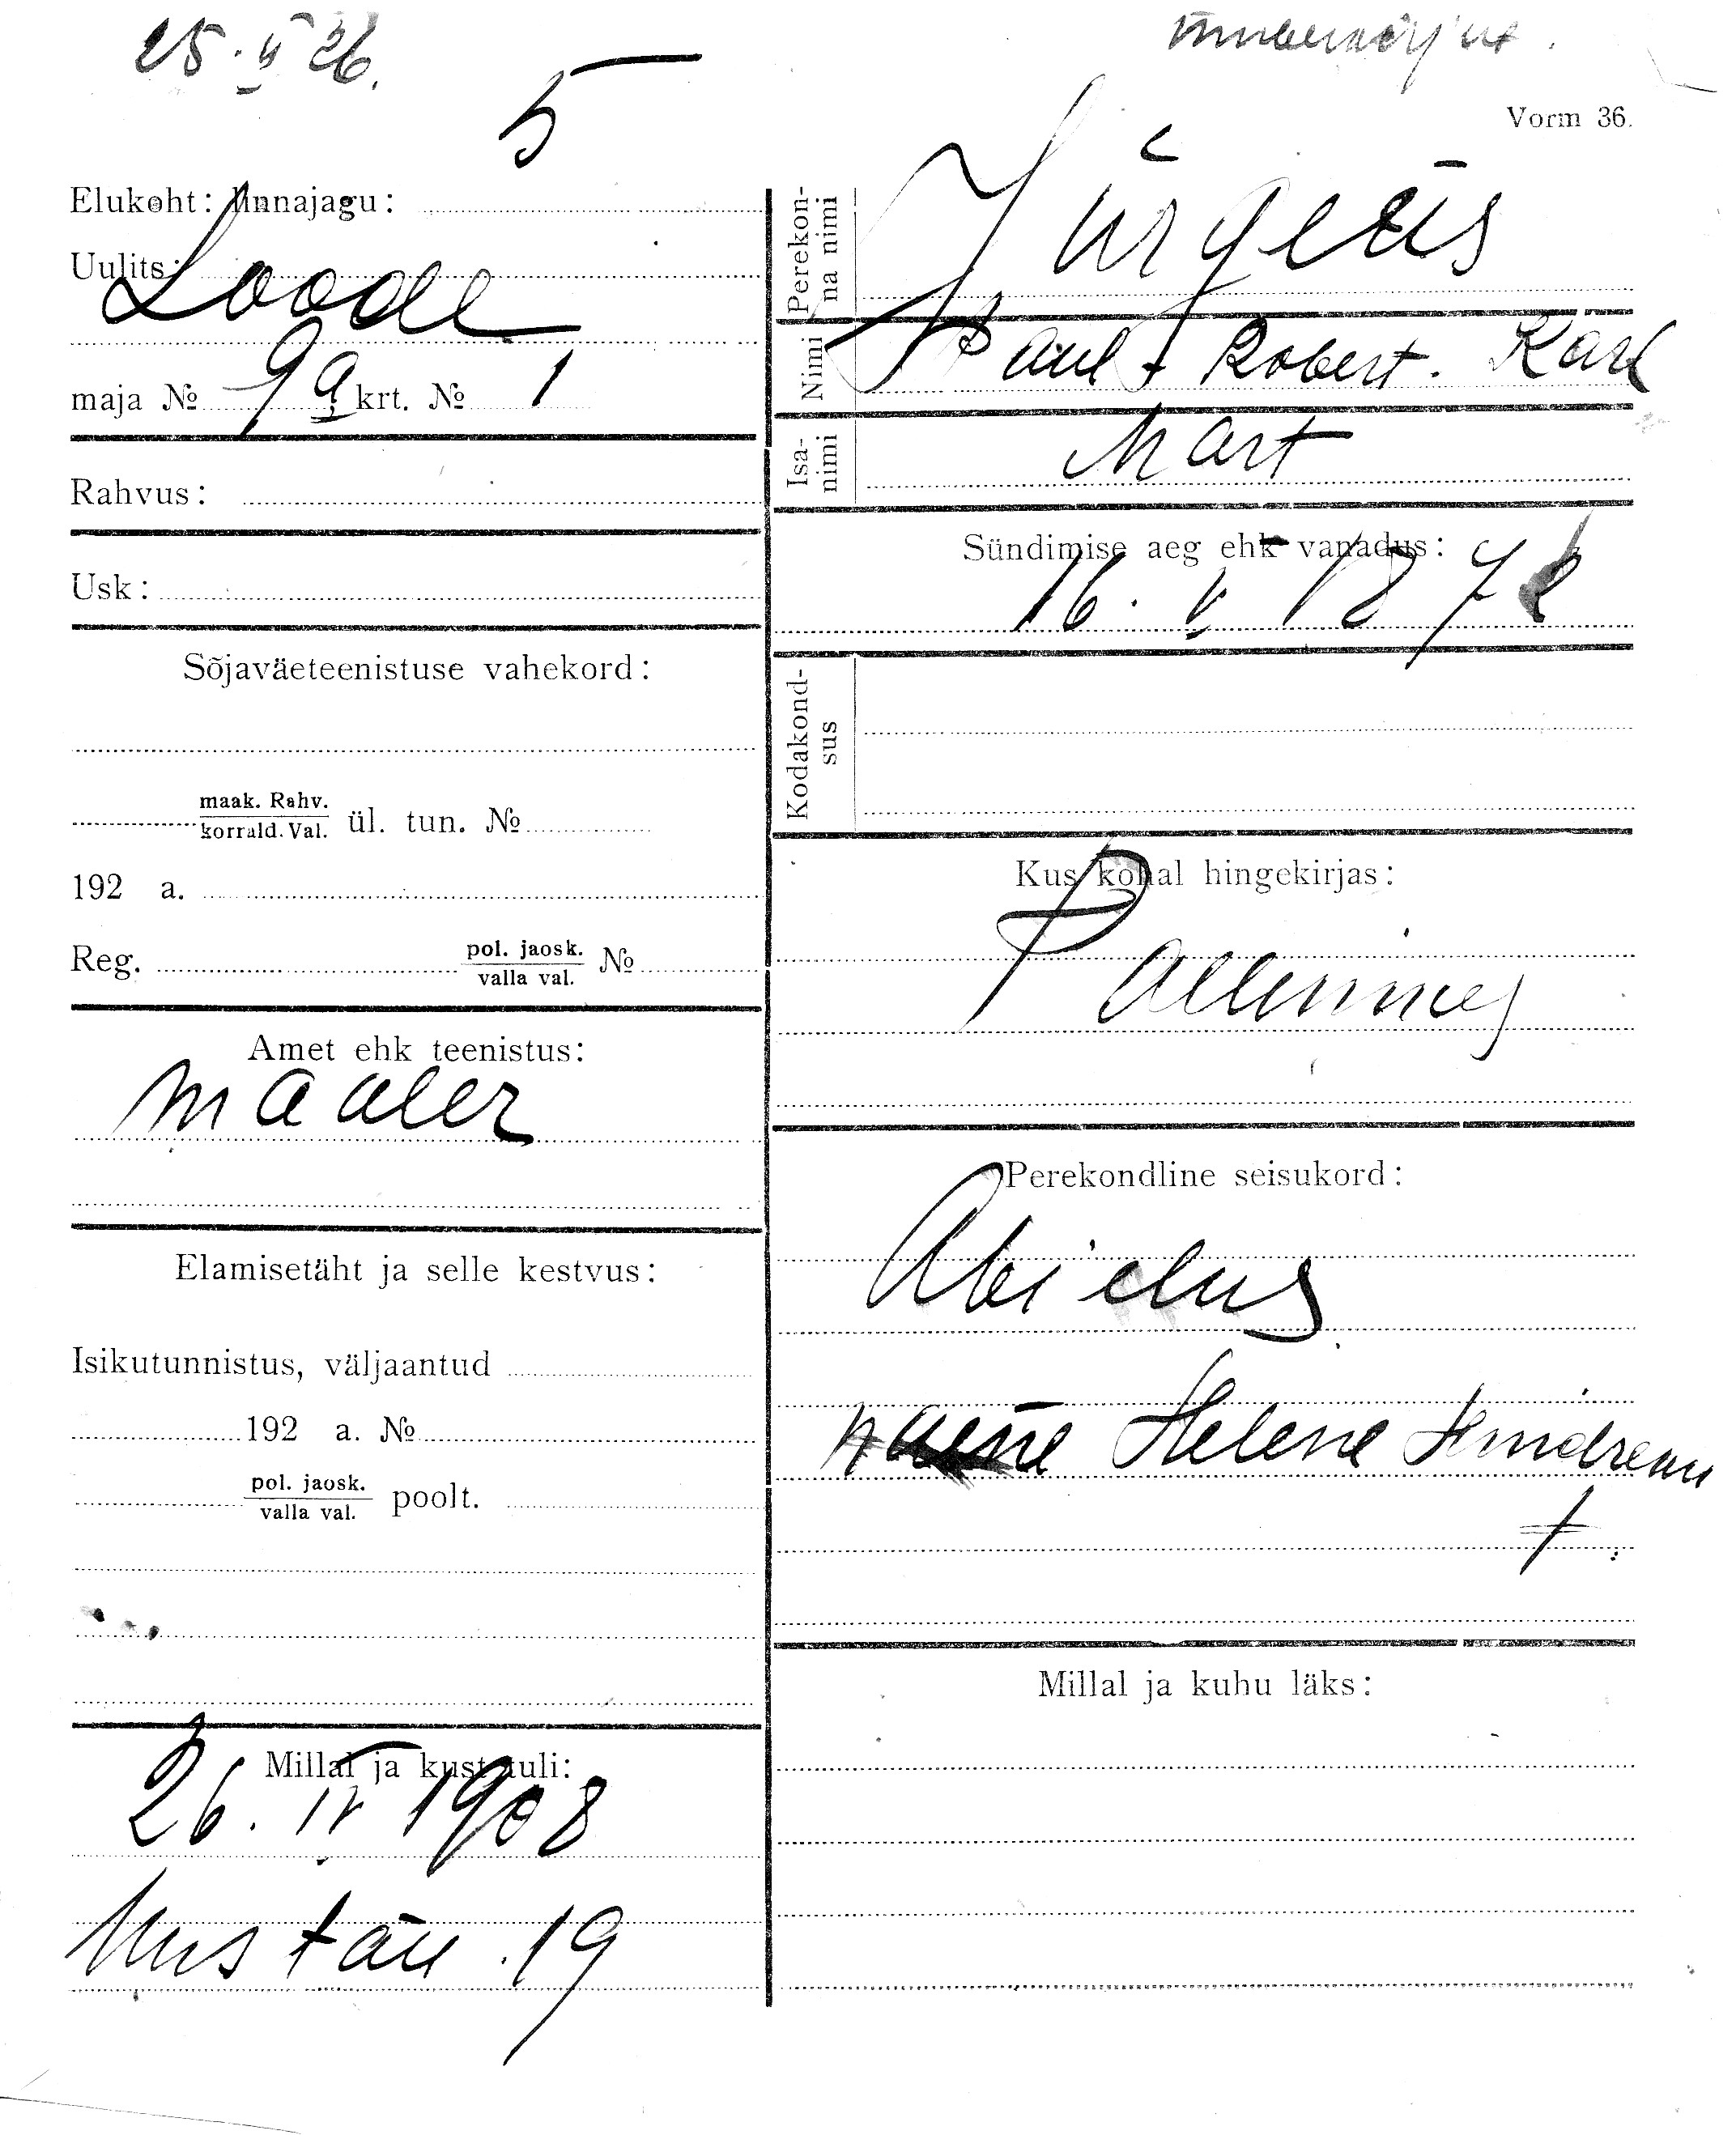 25. II 26.
5
Vorm 36.
Elukoht: linnajagu:
Uulits:
Loode
maja № 9a krt. № 1
Rahvus:
Usk:
Sõjaväeteenistuse vahekord:
maak. Rahv.
korrald. Val. ül. tun. №
192 a.
Reg. pol. jaosk.
valla val. №
Amet ehk teenistus:
maaler
Elamisetäht ja selle kestvus:
Isikutunnistus, väljaantud
192 a. №
pol. jaosk.
valla val. poolt.
Millal ja kust tuli:
26. IV 1908
Uus tän. 19
Perekonna nimi
Jürgens
Nimi
Paul Robert. Karl
Isanimi
Mart
Sündimise aeg ehk vanadus:
16. V. 1872
Kodakondsus
Kus kohal hingekirjas:
Perekondline seisukord:
Abielus
naene Helene
Millal ja kuhu läks: